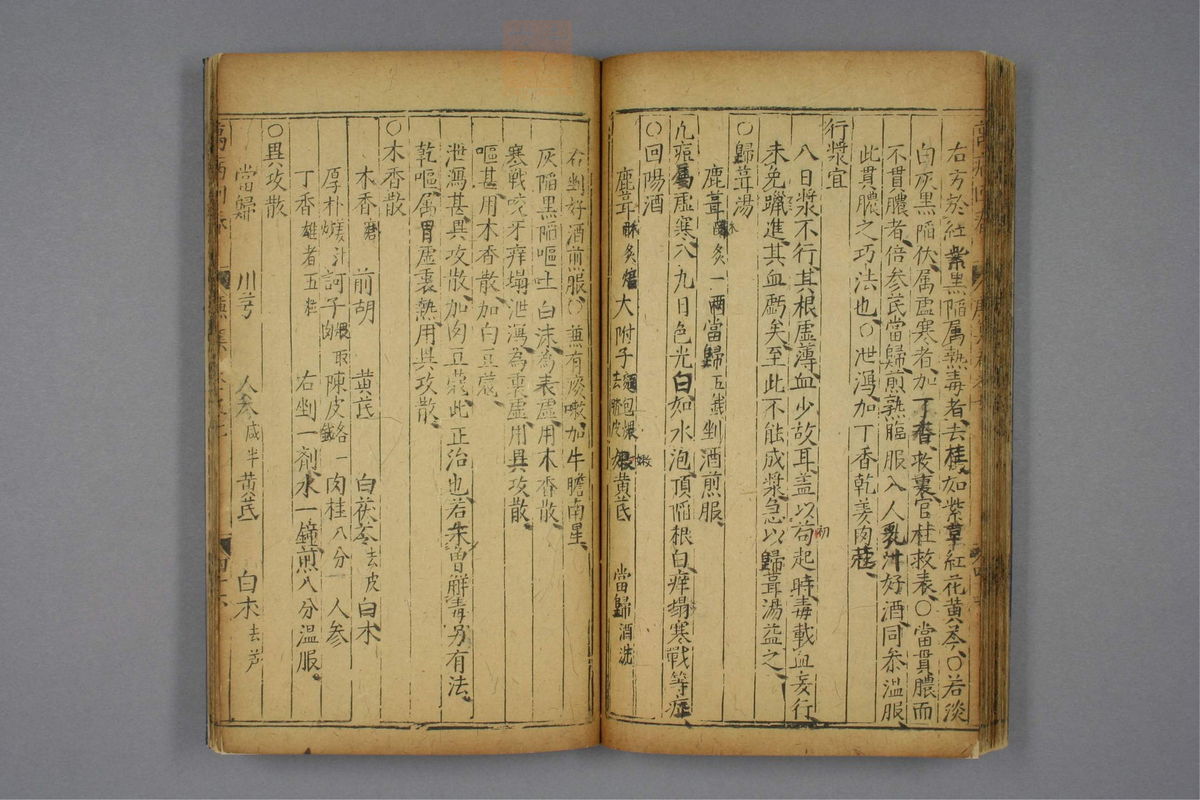 右方於紅紫黑陷属熱毒者去桂加紫草紅花黄芩○若淡
白灰黑陷伏属虛寒者加丁香救裏官桂救表○當貫膿而
不貫膿者倍參芪當歸煎熟臨服入人乳汁好酒同參溫服
此貫膿之巧法也○泄瀉加丁香乾姜肉桂
行漿宜
八日漿不行其根虛薄血少故耳盖以苟起時毒載血妄行
初
未免躐進其血虧矣至此不能成漿急以歸茸湯益之
○歸茸湯
鹿茸酥炙一兩當歸五錢剉酒煎服
凢痘屬虛寒八九日色光白如水泡頂陷根白痒塌寒戰等症
○回陽酒
鹿茸酥炙焙大附子去臍皮黄芪
當歸酒洗
右剉好酒煎服○兼有痰嗽加牛膽南星
灰陷黑陷嘔吐白沫為表虛用木香散
寒戰咬牙痒塌泄瀉為裏虛用異攻散
嘔甚用木香散加白豆蔻
泄瀉甚異攻散加肉豆蔻此正治也若未曾解毒另有法
乾嘔属胃虛裏熱用異攻散
○木香散
木香磨 前胡 黄芪 白茯苓去皮白术
厚朴姜汁炒訶子煨取肉陳皮各一錢肉桂八分人参
丁香雄者五粒 右剉一劑水一鐘煎八分溫服
○異攻散
當歸 川芎 人参咸半黄芪 白术去芦